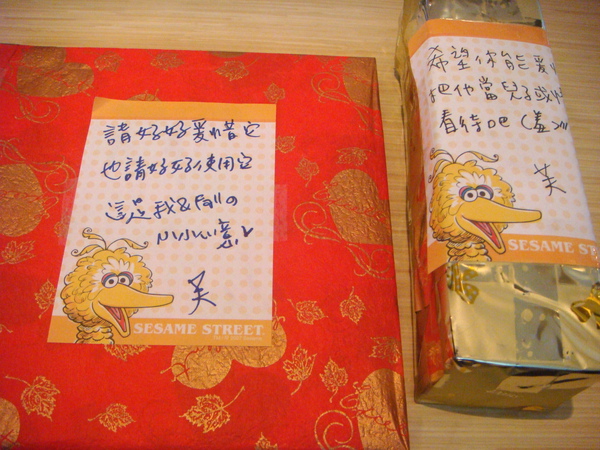 請好好愛惜它
也請好好使用它
這是我&Fallの
小小心意
芙
SESAME STREET
希望你能愛
把他當兒子或
看待吧(羞
芙
SESAME STR